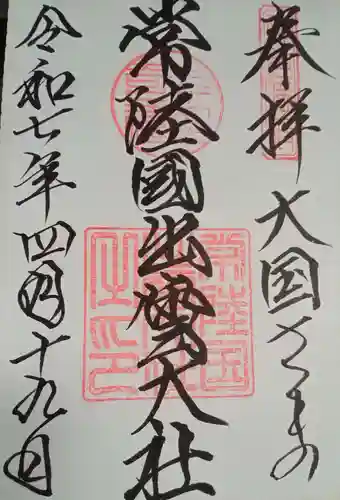 奉拝
大国さまの
常陸國出雲大社
令和七年四月十九日